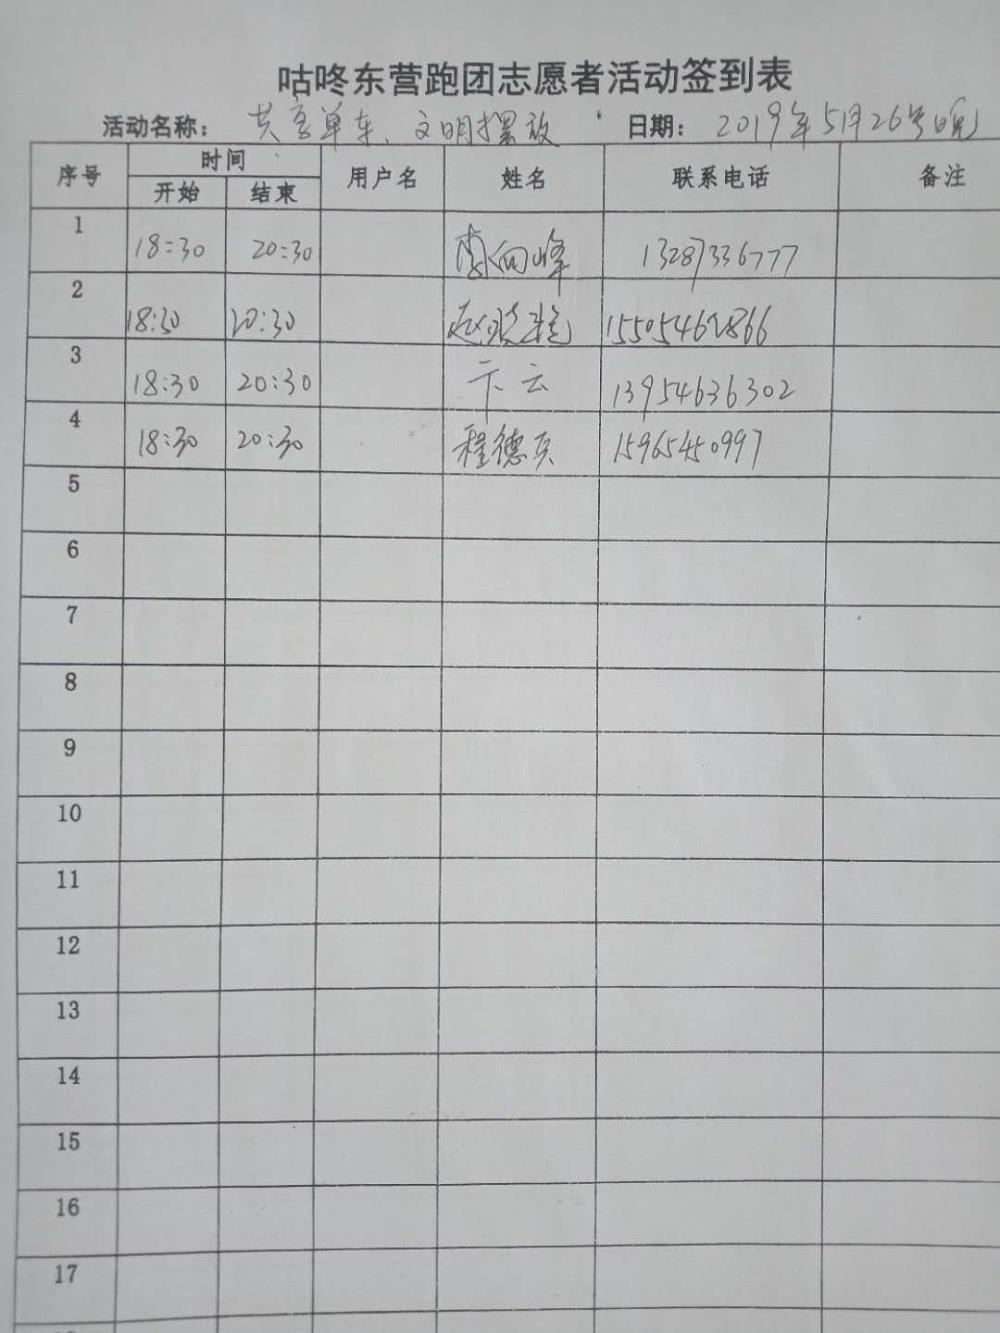 咕咚东营跑团志愿者活动签到表
活动名称： 共享单车、文明摆放 日期： 2019年5月26号(晚)
序号 时间 用户名 姓名 联系电话 备注
开始 结束
1 18:30 20:30 李向峰 13287336777
2 18:30 20:30 15505462866
3 18:30 20:30 卞云 13954636302
4 18:30 20:30 程德兵 15965450997
5
6
7
8
9
10
11
12
13
14
15
16
17